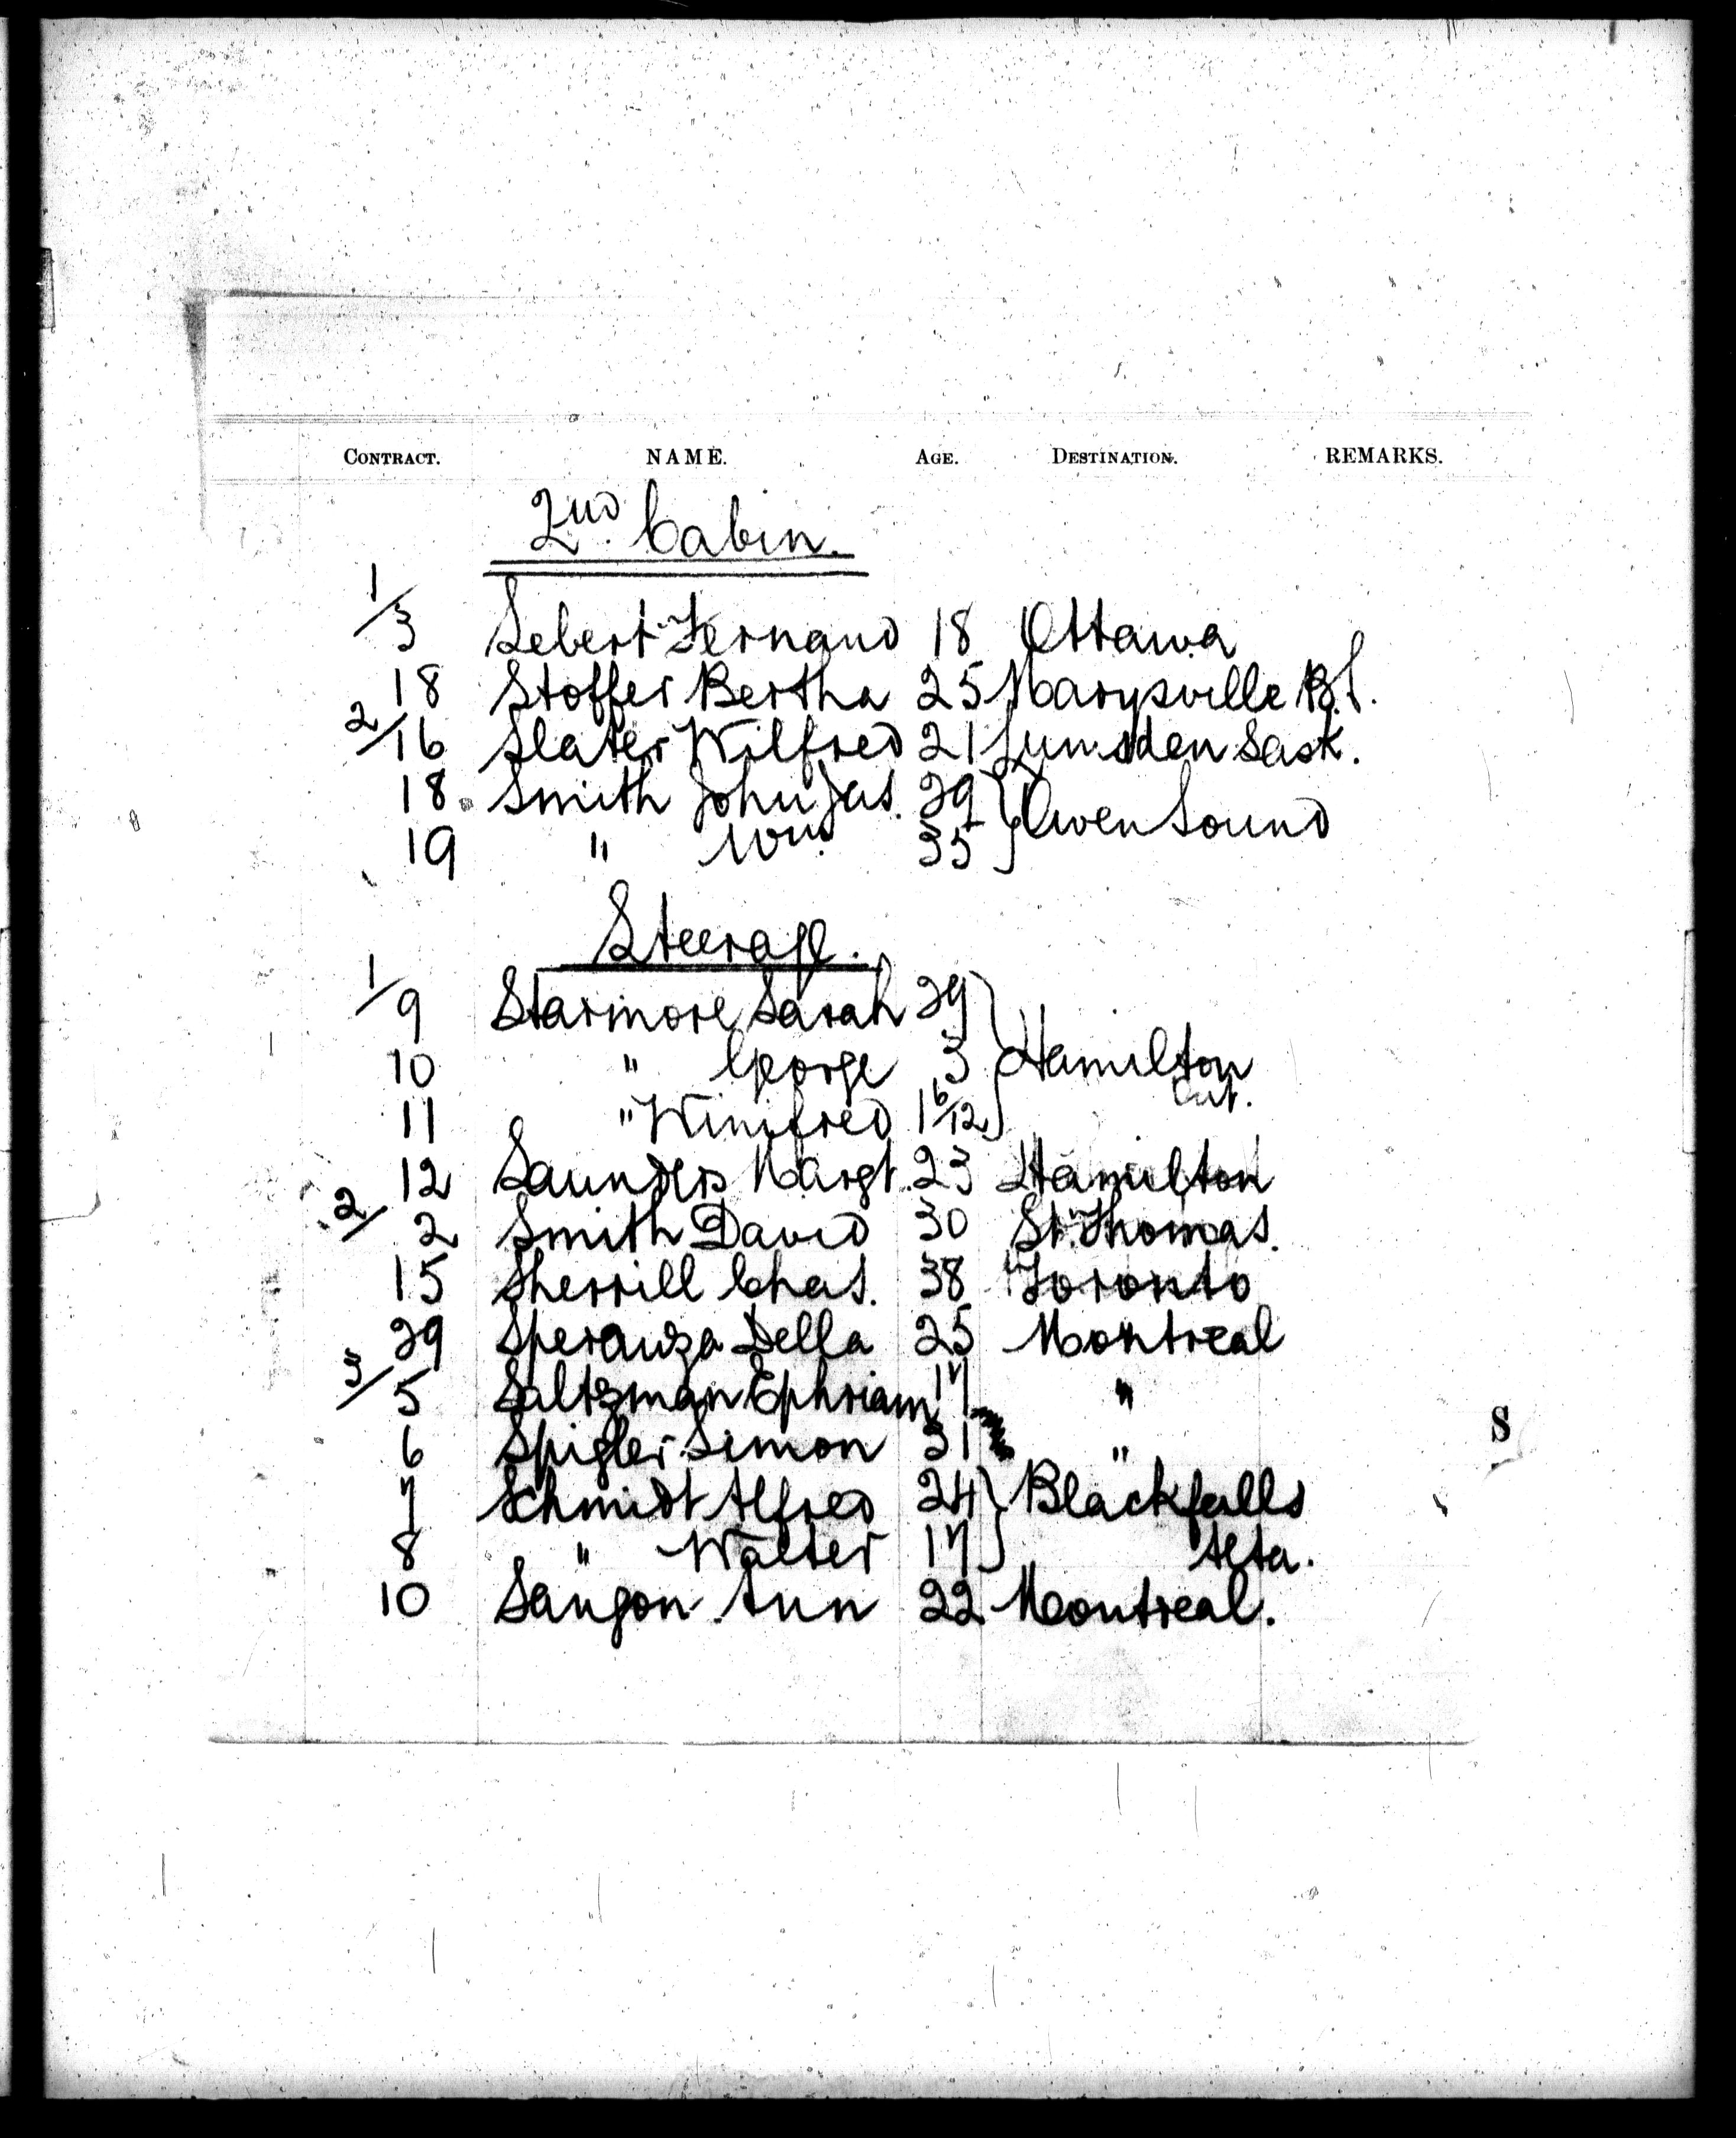 CONTRACT. NAME. AGE. DESTINATION. REMARKS.
2nd. Cabin.
1/3 Sebert Fernand 18 Ottawa
18 Stoffer Bertha 25 Marysville B.C.
2/16 Slater Wilfred 21 Lumsden Sask.
18 Smith John Jas. 29 } Owen Sound
19 " Wm. 35
Steerage.
1/9 Starmore Sarah 29
10 " George 3 } Hamilton
Ont.
11 " Winifred 1 6/12
12 Saunders Margt. 23 Hamilton
2/2 Smith David 30 St. Thomas.
15 Sherrill Chas. 38 Toronto
29 Speranza Della 25 Montreal
3/5 Saltzman Ephriam 17 "
6 Spigler Simon 31 "
S
7 Schmidt Alfred 24 } Blackfalls
8 " Walter 17 Alta.
10 Ann 22 Montreal.